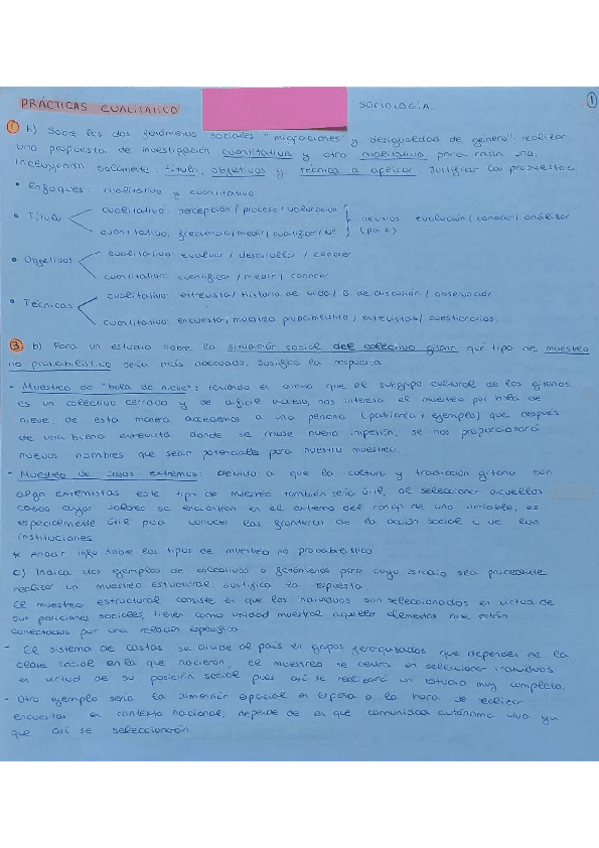 PRÁCTICAS CUALITATIVO SOCIOLOGÍA. 1
1 h) Sobre los dos fenómenos sociales "migraciones y desigualdad de género" realizar
una propuesta de investigación cuantitativa y otra cualitativa para cada una.
Incluyendo solamente: título, objetivos y técnica a aplicar. Justificar las propuestas.
• Enfoques: cualitativo y cuantitativo
• Título cualitativo: percepción / proceso / valoración
cuantitativo: frecuencia / medir / cuantificar / nº
neutros: evolución / conocer / analizar
• Objetivos cualitativo: evaluar / desarrollo / conocer
cuantitativo: cuantificar / medir / conocer
• Técnicas cualitativo: entrevista / historia de vida / G. de discusión / observación
cuantitativo: encuesta, muestreo probabilístico / entrevistas / cuestionarios.
3 b) Para un estudio sobre la situación social del colectivo gitano qué tipo de muestreo
no probabilístico sería más adecuado. Justifica la respuesta
- Muestreo de "bola de nieve": teniendo en cuenta que el subgrupo cultural de los gitanos
es un colectivo cerrado y de difícil acceso, nos interesa el muestreo por bola de
nieve, de esta manera accedemos a una persona (patriarca x ejemplo) que después
de una buena entrevista donde se muestre buena impresión, se nos proporcionará
nuevos nombres que sean potenciales para nuestro muestreo.
- Muestreo de casos extremos: debido a que la cultura y tradición gitana son
algo extremistas este tipo de muestreo también sería útil, al seleccionar aquellos
casos cuyos valores se encuentran en el extremo del rango de una variable, es
especialmente útil para conocer las fronteras de la acción social y de las
instituciones.
* Añadir info sobre los tipos de muestreo no probabilístico
c) Indica dos ejemplos de colectivos o fenómenos para cuyo estudio sea procedente
realizar un muestreo estructural. Justifica la respuesta
El muestreo estructural consiste en que los individuos son seleccionados en virtud de
sus posiciones sociales, tienen como unidad muestral aquellos elementos que están
conectados por una relación específica.
- El sistema de castas se divide al país en grupos jerarquizados que depende de la
clase social en la que nacieron, el muestreo se centra en seleccionar individuos
en virtud de su posición social pues así se realizará un estudio muy completo.
- Otro ejemplo sería la dimensión espacial en España a la hora de realizar
encuestas en contexto nacional, depende de en que comunidad autónoma viva ya
que así se seleccionarán